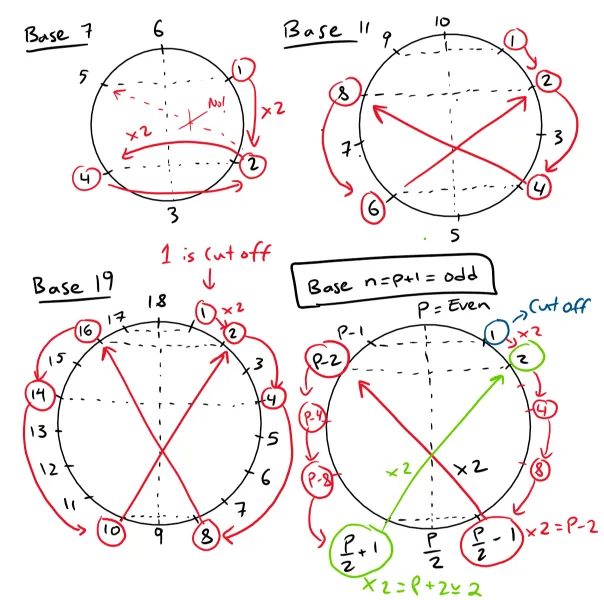 Base 7
6
5
1
No!
x2
x2
4
2
3
Base 11
10
9
1
8
2
7
3
6
4
5
1 is cut off
Base 19
18
17
1
x2
16
2
15
3
14
4
13
5
12
6
11
7
10
9
8
Base n=p+1=odd
P=Even
Cut off
P-1
1
x2
P-2
2
P-4
4
P-8
8
x2
x2
P/2+1
P/2
P/2-1
x2=P-2
x2=P+2≌2